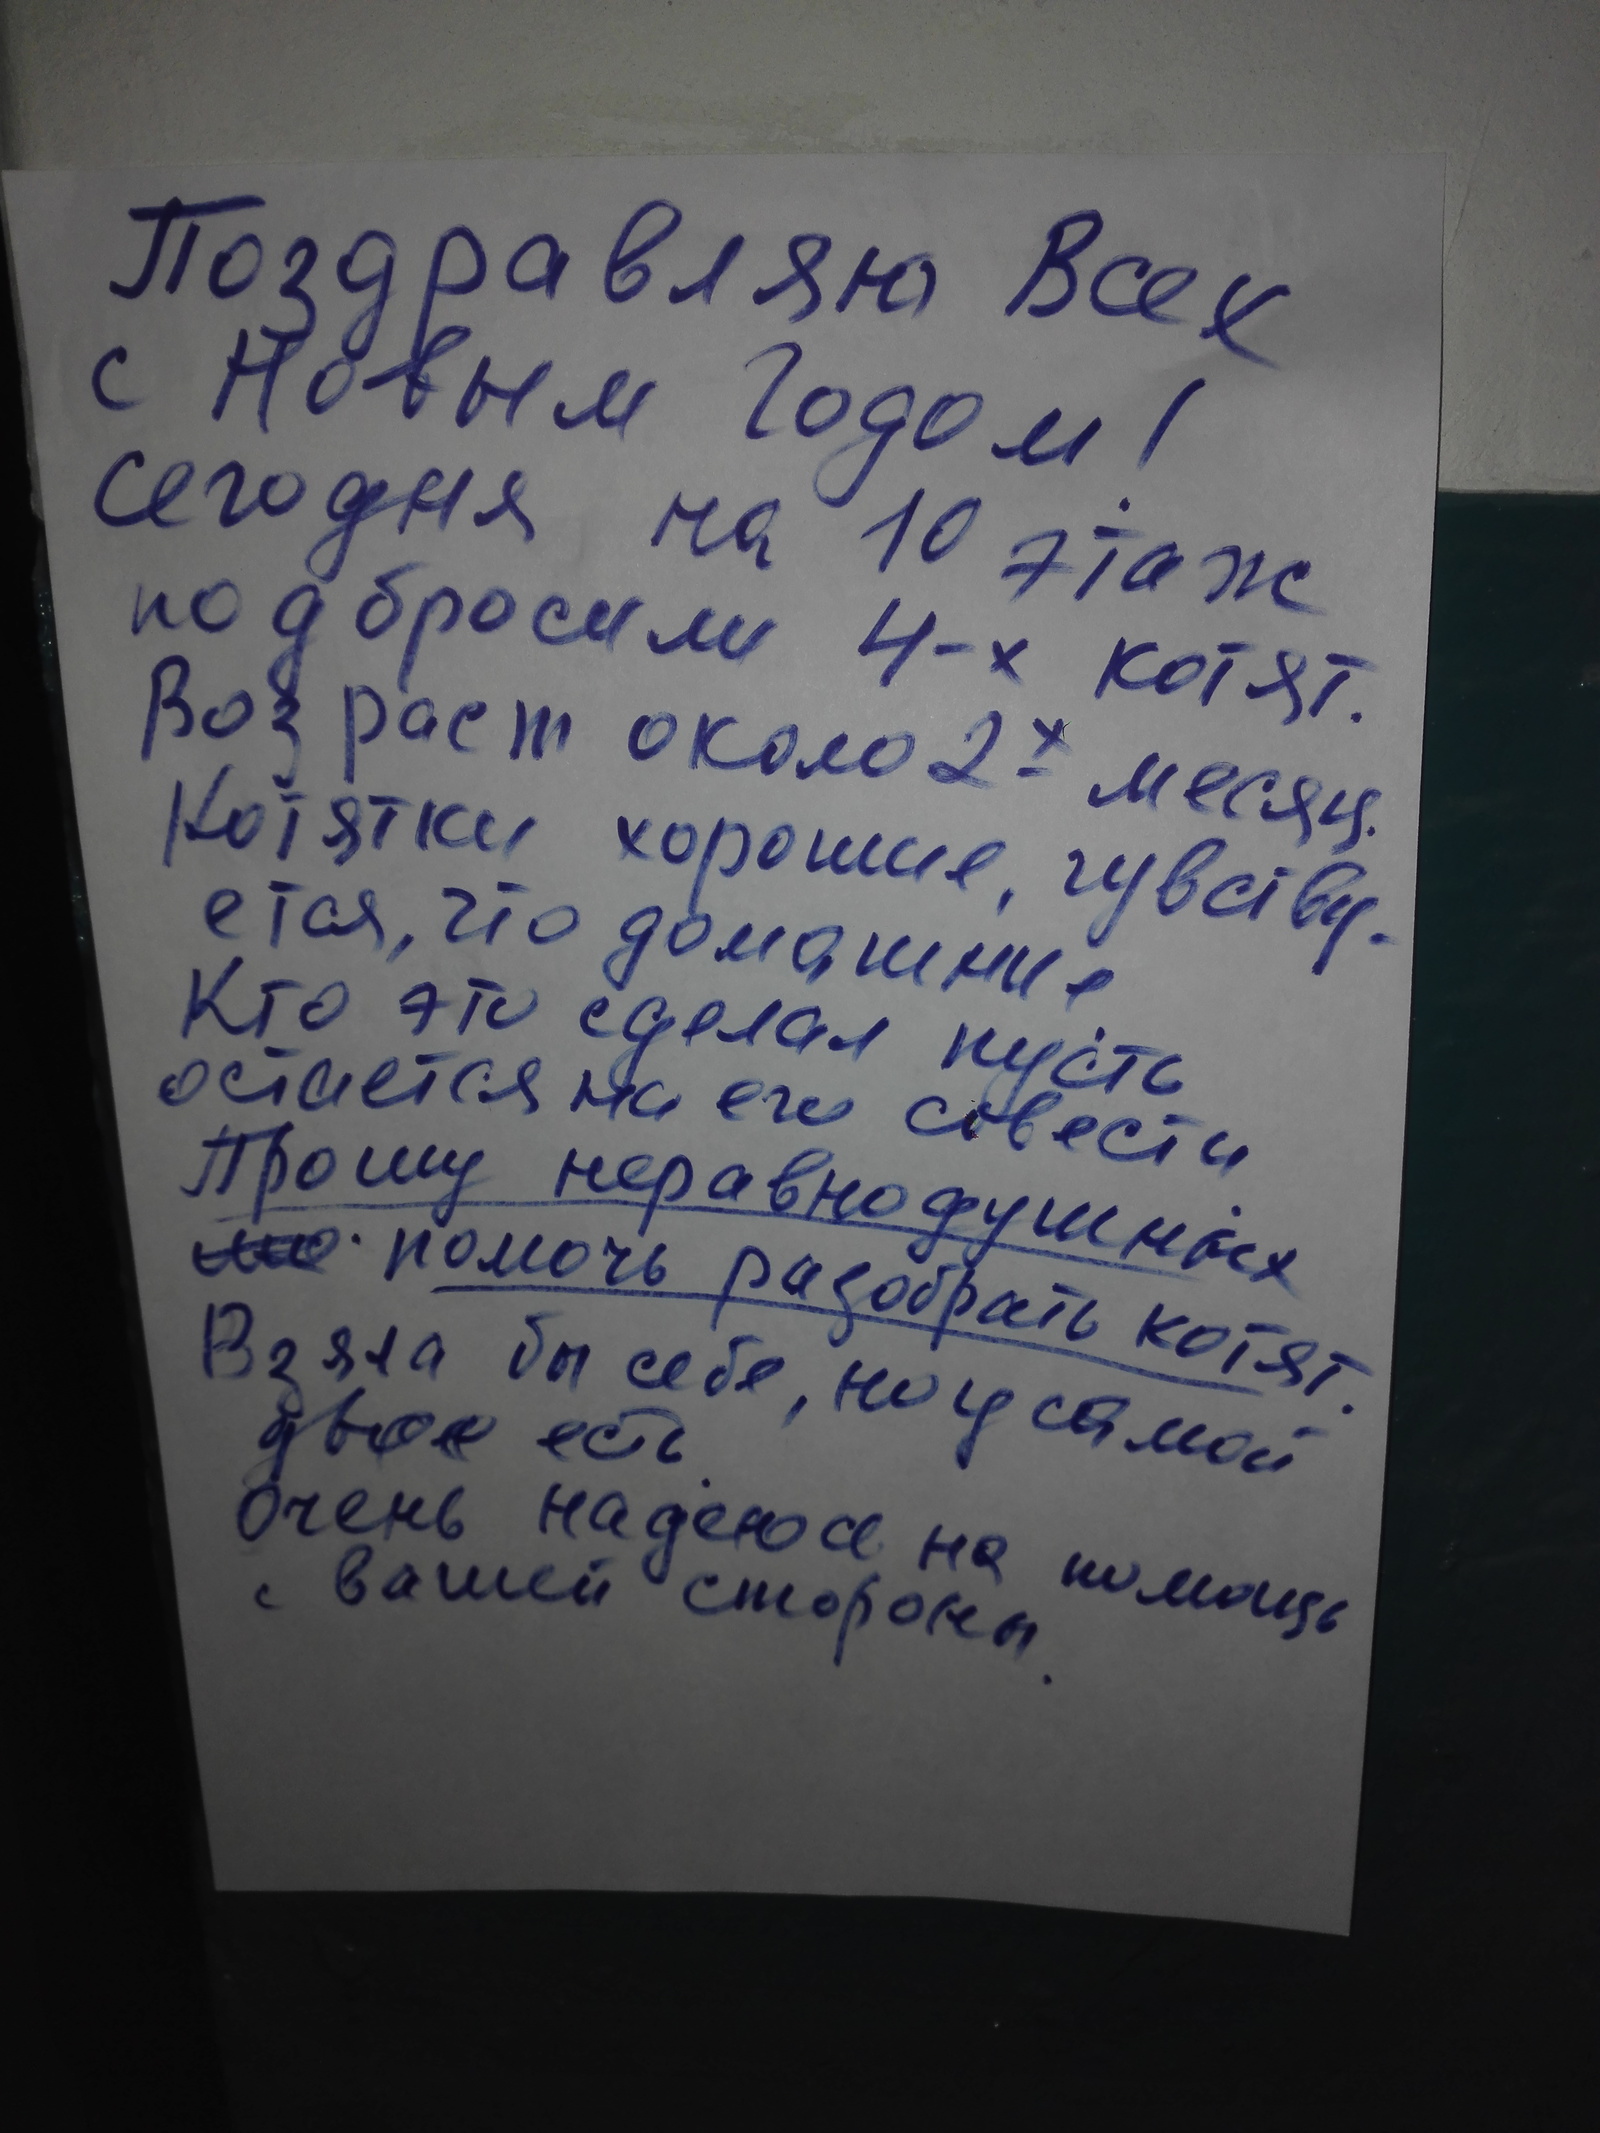 Поздравляю Всех
с Новым Годом!
Сегодня на 10 этаж
подбросили 4-х котят.
Возраст около 2х месяц.
Котятки хорошие, чувству-
ется, что домашние
Кто это сделал пусть
остается на его совести
Прошу неравнодушных
помочь разобрать котят.
Взяла бы себе, но у самой
двое есть.
Очень надеюсь на помощь
с вашей стороны.